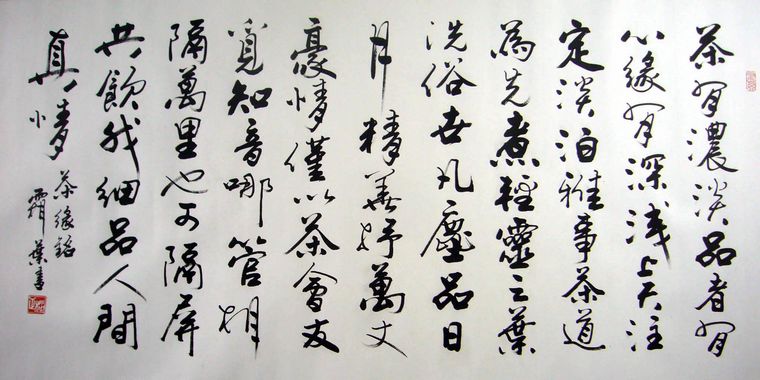 茶有濃淡品者有
心緣有深淺上天注
定淡泊雅事茶道
為先煮輕靈之葉
洗俗世凡塵品日
月精華抒萬丈
豪情僅以茶會友
覓知音哪管相
隔萬里也可隔屏
共飲我細品人間
真情
茶緣銘
霜葉書